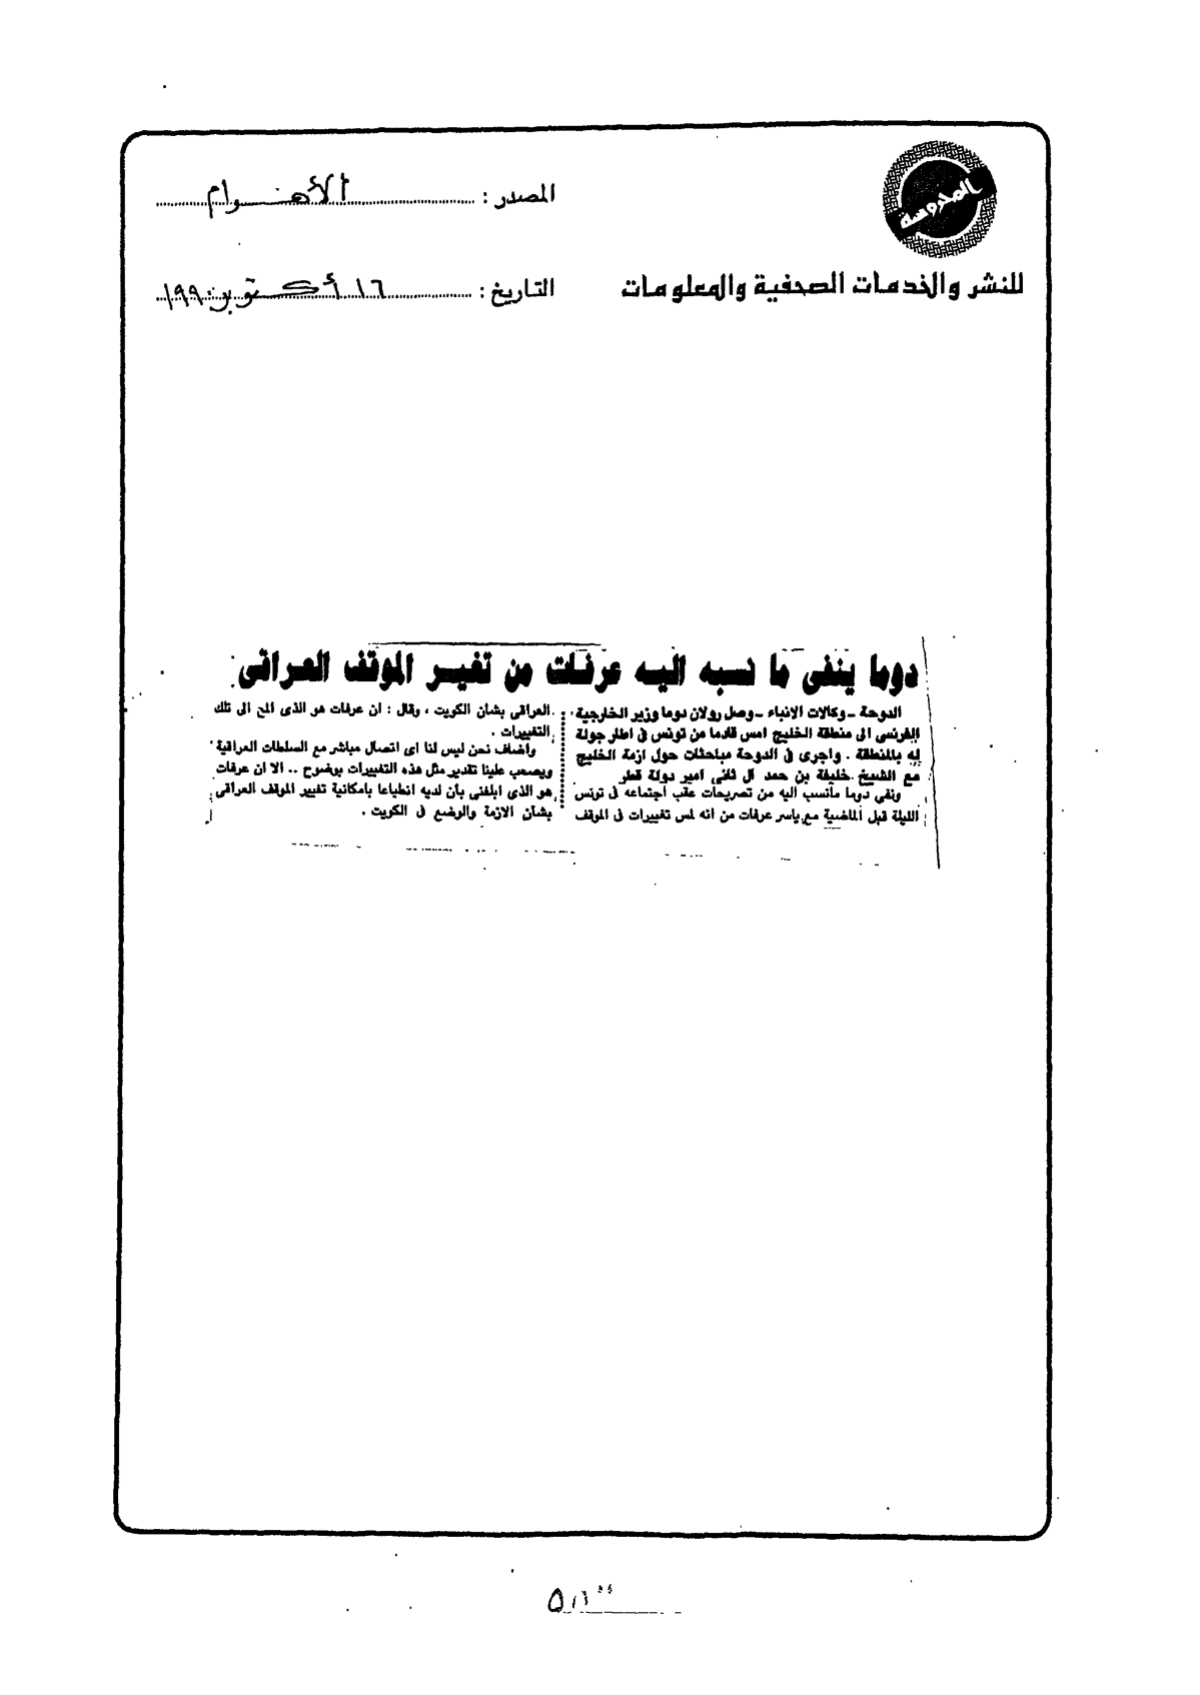 المحروسة
للنشر والخدمات الصحفية والمعلومات
المصدر : الأهرام
التاريخ : ١٦ أكتوبر ١٩٩٠
دوما ينفى ما نسبه اليه عرفات من تغيير الموقف العراقى
الدوحة - وكالات الانباء - وصل رولان دوما وزير الخارجية
الفرنسى الى منطقة الخليج امس قادما من تونس فى اطار جولة
له بالمنطقة . واجرى فى الدوحة مباحثات حول ازمة الخليج
مع الشيخ خليفة بن حمد آل ثانى امير دولة قطر
ونفى دوما مانسب اليه من تصريحات عقب اجتماعه فى تونس
الليلة قبل الماضية مع ياسر عرفات من انه لمس تغييرات فى الموقف
العراقى بشان الكويت ، وقال : ان عرفات هو الذى المح الى تلك
التغييرات .
واضاف نحن ليس لنا اى اتصال مباشر مع السلطات العراقية
ويصعب علينا تقدير مثل هذه التغييرات بوضوح .. الا ان عرفات
هو الذى ابلغنى بأن لديه انطباعا بامكانية تغيير الموقف العراقى
بشان الازمة والوضع فى الكويت .